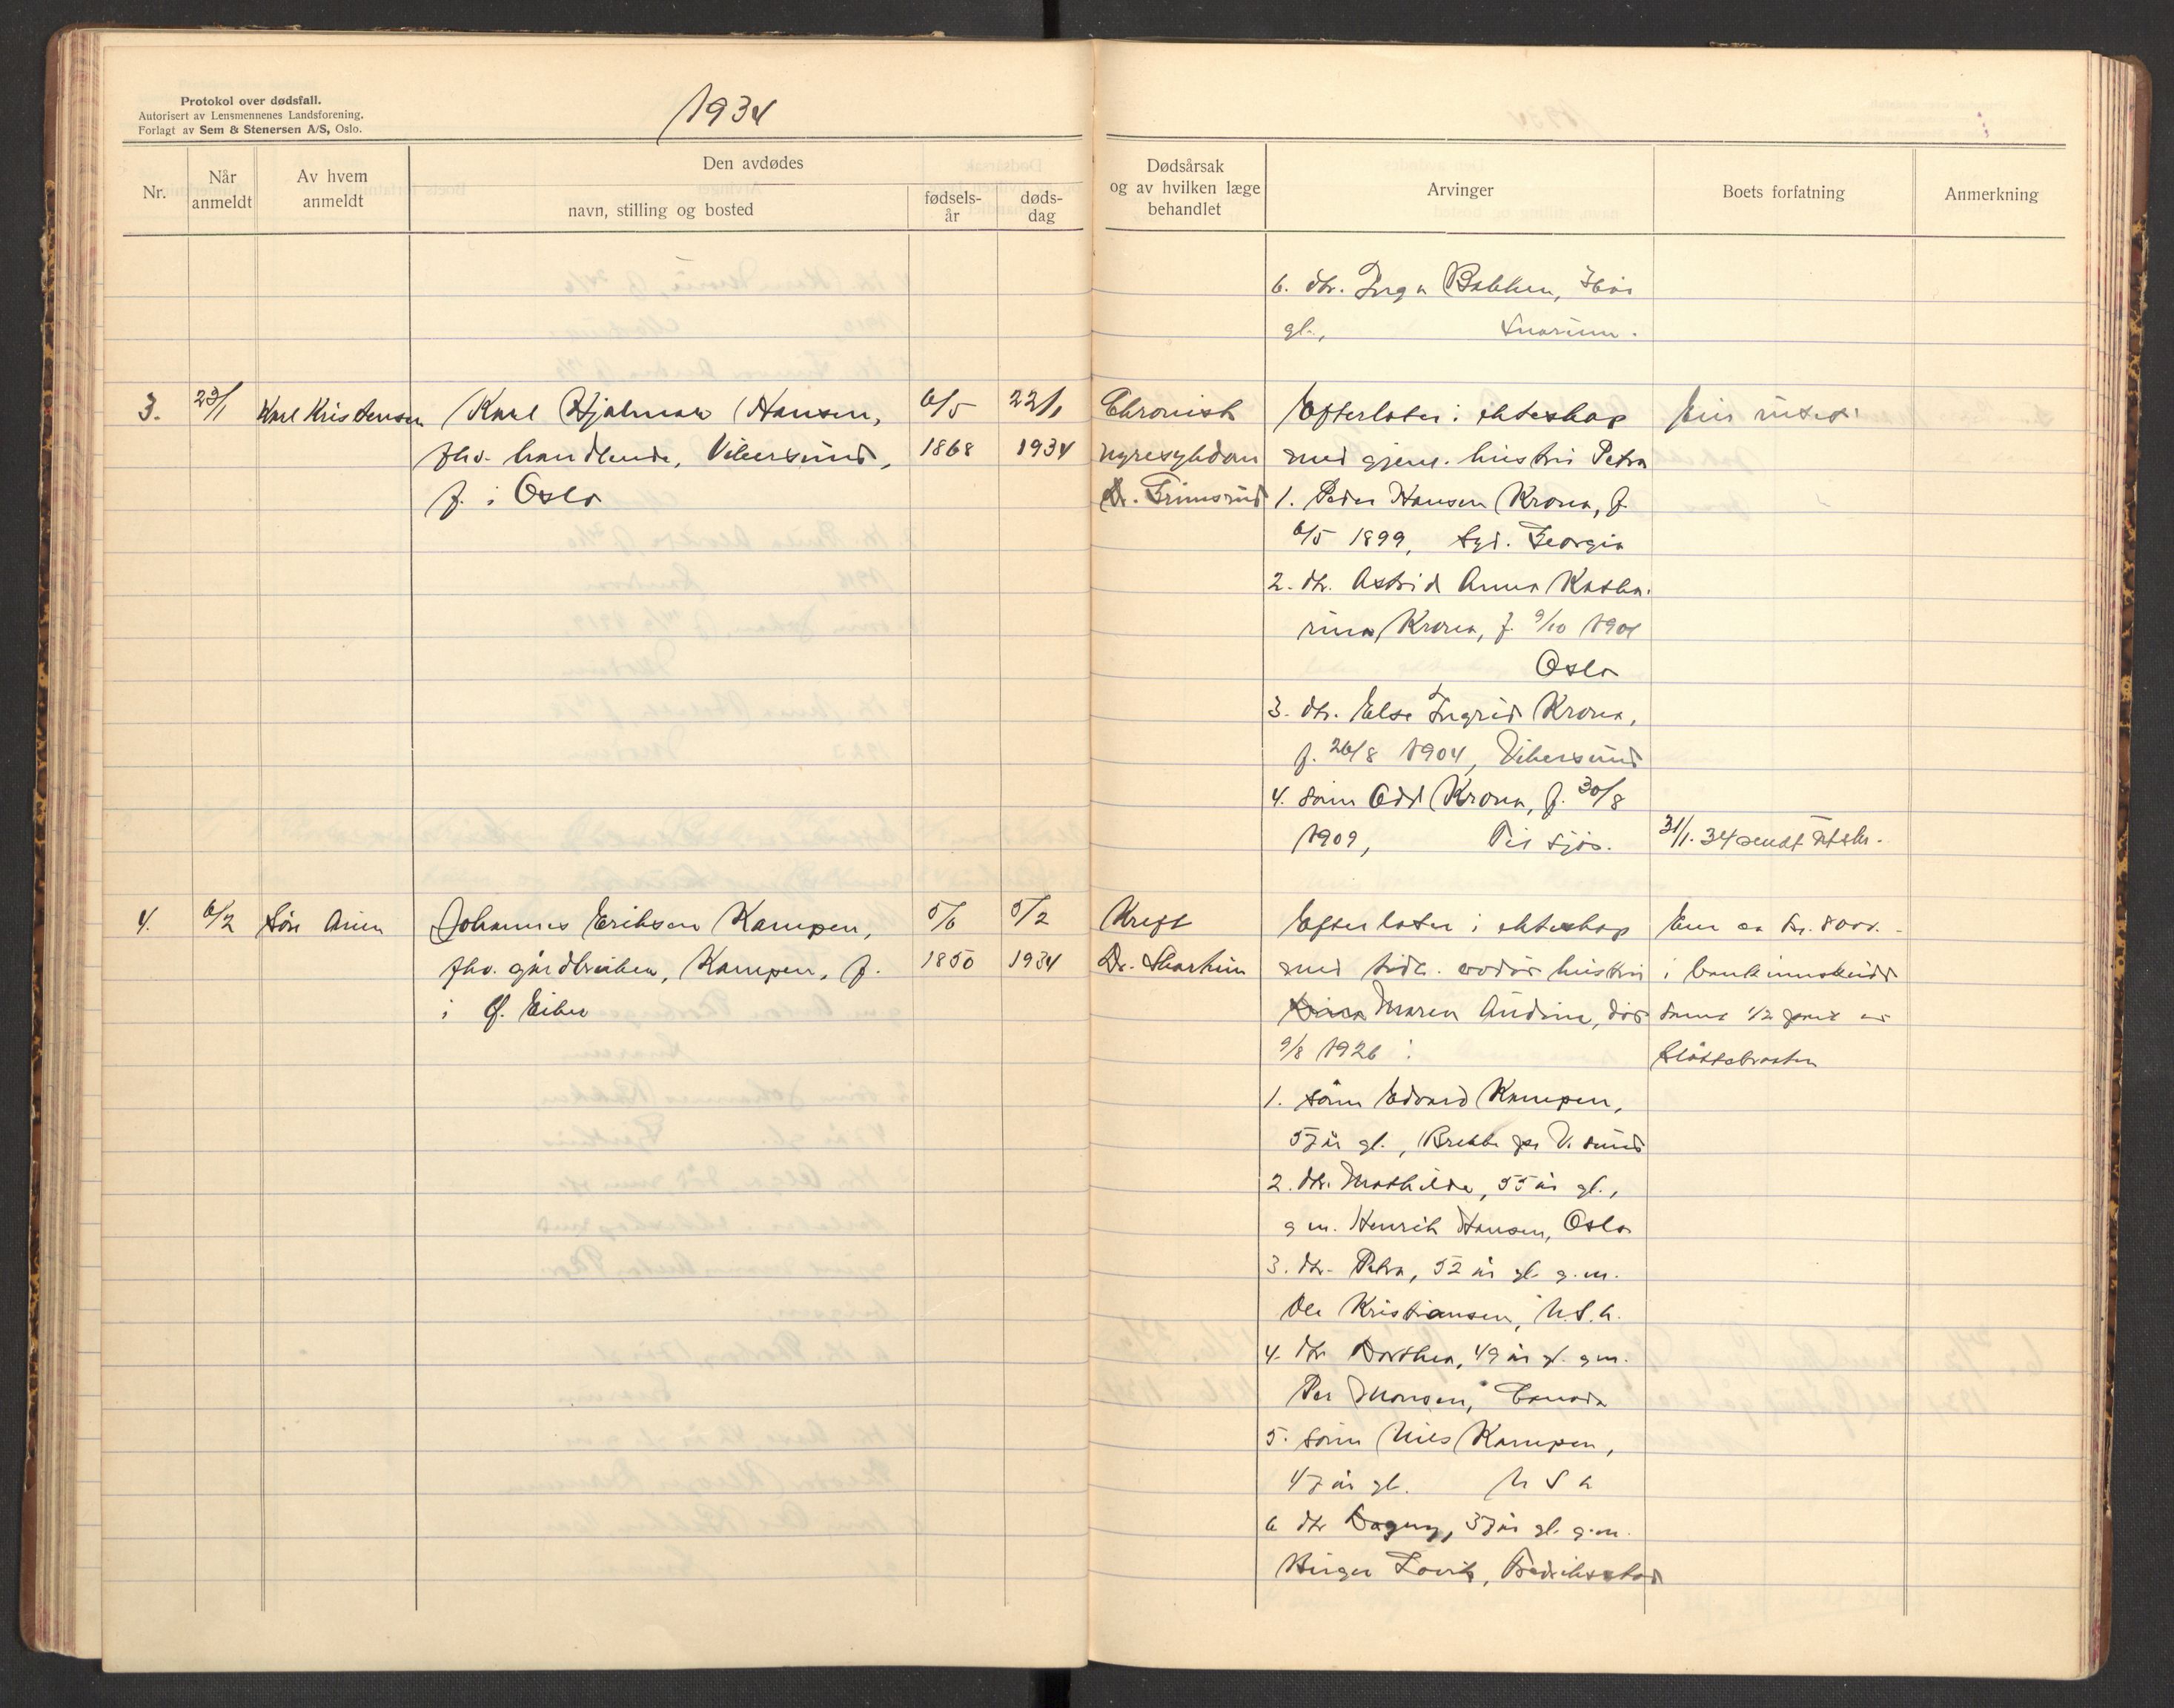 Protokol over dødsfall.
Autorisert av Lensmennenes Landsforening.
Forlagt av Sem & Stenersen A/S, Oslo.
1934
Nr.
Når anmeldt
Av hvem anmeldt
Den avdødes
navn, stilling og bosted
fødsels-år
døds-dag
Dødsårsak og av hvilken læge behandlet
Arvinger
Boets forfatning
Anmerkning
6. dtr. Inga Bakken, 36 år
gl., Snarum.
3. 23/1 Karl Kristensen Karl Hjalmar Hansen, 6/5 22/1 Chronisk Efterlater i ekteskap Eier intet
fhv. handlende, Vikersund, 1868 1934 nyresykdom med gjenl. hustru Petra
f. i Oslo Dr. Grimsrud 1. Peder Hansen Krona, f.
6/5 1899, Syd. Georgia
2. dtr. Astrid Anna Katha-
rina Krona, f. 9/10 1901
Oslo
3. dtr. Else Ingrid Krona,
f. 26/8 1904, Vikersund
4. sønn Odd Krona, f. 30/8
1909, Til sjøs. 31/1. 34 sendt
4. 6/2 Johannes Eriksen Kampen, 5/6 5/2 Kreft Efterlater i ekteskap Eier ca kr. 8000.-
fhv. gårdbruker, Kampen, f. 1850 1934 Dr. med tidl. avdøde hustru i bankinnskudd
i Ø. Eiker Maren Andine, død samt 1/2 part av
9/8 1926: Slåttebråten
1. sønn Edvard Kampen,
57 år gl., Brekke pr V.sund
2. dtr. Mathilde, 55 år gl.,
g m. Henrik Hansen, Oslo
3. dtr. Petra, 52 år gl. g.m.
Ole Kristiansen, U.S.A.
4. dtr Dorthea, 49 år gl. g m.
Per Monsen, Canada
5. sønn Nils Kampen,
47 år gl. U S A
6 dtr Dagny, 37 år gl. g.m.
Birger Lovik, Fredrikstad